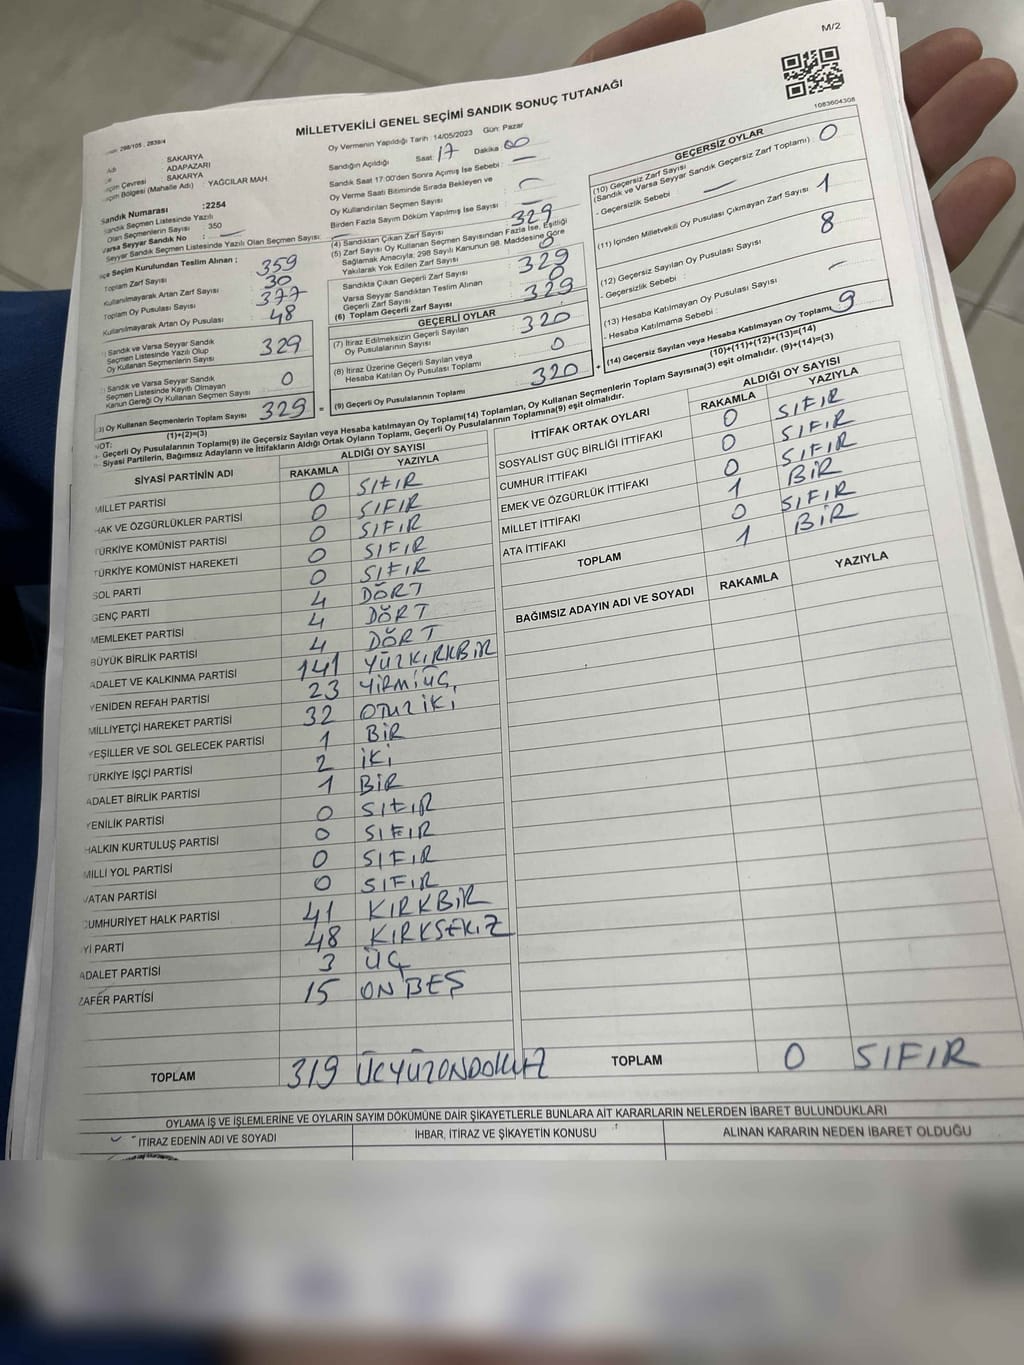 M/2
1083604308
MİLLETVEKİLİ GENEL SEÇİMİ SANDIK SONUÇ TUTANAĞI
298/105 , 2839/4
Adı SAKARYA
ADAPAZARI
Çevresi SAKARYA
Bölgesi (Mahalle Adı) : YAĞCILAR MAH
Sandık Numarası :2254
Sandık Seçmen Listesinde Yazılı
Olan Seçmenlerin Sayısı : 350
Varsa Seyyar Sandık No : —
Seyyar Sandık Seçmen Listesinde Yazılı Olan Seçmen Sayısı: —
Seçim Kurulundan Teslim Alınan ;
Toplam Zarf Sayısı 359
Kullanılmayarak Artan Zarf Sayısı 30
Toplam Oy Pusulası Sayısı 377
Kullanılmayarak Artan Oy Pusulası 48
Sandık ve Varsa Seyyar Sandık
Seçmen Listesinde Yazılı Olup
Oy Kullanan Seçmenlerin Sayısı 329
Sandık ve Varsa Seyyar Sandık
Seçmen Listesinde Kayıtlı Olmayan
Kanun Gereği Oy Kullanan Seçmen Sayısı 0
3) Oy Kullanan Seçmenlerin Toplam Sayısı 329 =
(1)+(2)=(3)
Oy Vermenin Yapıldığı Tarih : 14/05/2023 Gün: Pazar
Sandığın Açıldığı Saat : 17 Dakika : 00
Sandık Saat 17:00'den Sonra Açılmış İse Sebebi : —
Oy Verme Saati Bitiminde Sırada Bekleyen ve
Oy Kullandırılan Seçmen Sayısı : —
Birden Fazla Sayım Döküm Yapılmış İse Sayısı : —
(4) Sandıktan Çıkan Zarf Sayısı 329
(5) Zarf Sayısı Oy Kullanan Seçmen Sayısından Fazla İse, Eşitliği
Sağlamak Amacıyla; 298 Sayılı Kanunun 98. Maddesine Göre
Yakılarak Yok Edilen Zarf Sayısı 0
Sandıkta Çıkan Geçerli Zarf Sayısı 329
Varsa Seyyar Sandıktan Teslim Alınan
Geçerli Zarf Sayısı 0
(6) Toplam Geçerli Zarf Sayısı 329
GEÇERLİ OYLAR
(7) İtiraz Edilmeksizin Geçerli Sayılan
Oy Pusulalarının Sayısı 320
(8) İtiraz Üzerine Geçerli Sayılan veya
Hesaba Katılan Oy Pusulası Toplamı 0
(9) Geçerli Oy Pusulalarının Toplamı 320 +
GEÇERSİZ OYLAR
(10) Geçersiz Zarf Sayısı
(Sandık ve Varsa Seyyar Sandık Geçersiz Zarf Toplamı) : 0
- Geçersizlik Sebebi : —
(11) İçinden Milletvekili Oy Pusulası Çıkmayan Zarf Sayısı 1
(12) Geçersiz Sayılan Oy Pusulası Sayısı 8
- Geçersizlik Sebebi :
(13) Hesaba Katılmayan Oy Pusulası Sayısı —
- Hesaba Katılmama Sebebi :
(14) Geçersiz Sayılan veya Hesaba Katılmayan Oy Toplamı 9
(10)+(11)+(12)+(13)=(14)
NOT:
- Geçerli Oy Pusulalarının Toplamı(9) ile Geçersiz Sayılan veya Hesaba katılmayan Oy Toplamı(14) Toplamları, Oy Kullanan Seçmenlerin Toplam Sayısına(3) eşit olmalıdır. (9)+(14)=(3)
- Siyasi Partilerin, Bağımsız Adayların ve İttifakların Aldığı Ortak Oyların Toplamı, Geçerli Oy Pusulalarının Toplamına(9) eşit olmalıdır.
SİYASİ PARTİNİN ADI ALDIĞI OY SAYISI
RAKAMLA YAZIYLA
MİLLET PARTİSİ 0 SIFIR
HAK VE ÖZGÜRLÜKLER PARTİSİ 0 SIFIR
TÜRKİYE KOMÜNİST PARTİSİ 0 SIFIR
TÜRKİYE KOMÜNİST HAREKETİ 0 SIFIR
SOL PARTİ 0 SIFIR
GENÇ PARTİ 4 DÖRT
MEMLEKET PARTİSİ 4 DÖRT
BÜYÜK BİRLİK PARTİSİ 4 DÖRT
ADALET VE KALKINMA PARTİSİ 141 YÜZKIRKBİR
YENİDEN REFAH PARTİSİ 23 YİRMİÜÇ
MİLLİYETÇİ HAREKET PARTİSİ 32 OTUZİKİ
YEŞİLLER VE SOL GELECEK PARTİSİ 1 BİR
TÜRKİYE İŞÇİ PARTİSİ 2 İKİ
ADALET BİRLİK PARTİSİ 1 BİR
YENİLİK PARTİSİ 0 SIFIR
HALKIN KURTULUŞ PARTİSİ 0 SIFIR
MİLLİ YOL PARTİSİ 0 SIFIR
VATAN PARTİSİ 0 SIFIR
CUMHURİYET HALK PARTİSİ 41 KIRKBİR
İYİ PARTİ 48 KIRKSEKİZ
ADALET PARTİSİ 3 ÜÇ
ZAFER PARTİSİ 15 ONBEŞ
TOPLAM 319 ÜÇYÜZONDOKUZ
İTTİFAK ORTAK OYLARI ALDIĞI OY SAYISI
RAKAMLA YAZIYLA
SOSYALİST GÜÇ BİRLİĞİ İTTİFAKI 0 SIFIR
CUMHUR İTTİFAKI 0 SIFIR
EMEK VE ÖZGÜRLÜK İTTİFAKI 0 SIFIR
MİLLET İTTİFAKI 1 BİR
ATA İTTİFAKI 0 SIFIR
TOPLAM 1 BİR
BAĞIMSIZ ADAYIN ADI VE SOYADI RAKAMLA YAZIYLA
TOPLAM 0 SIFIR
OYLAMA İŞ VE İŞLEMLERİNE VE OYLARIN SAYIM DÖKÜMÜNE DAİR ŞİKAYETLERLE BUNLARA AİT KARARLARIN NELERDEN İBARET BULUNDUKLARI
İTİRAZ EDENİN ADI VE SOYADI İHBAR, İTİRAZ VE ŞİKAYETİN KONUSU ALINAN KARARIN NEDEN İBARET OLDUĞU